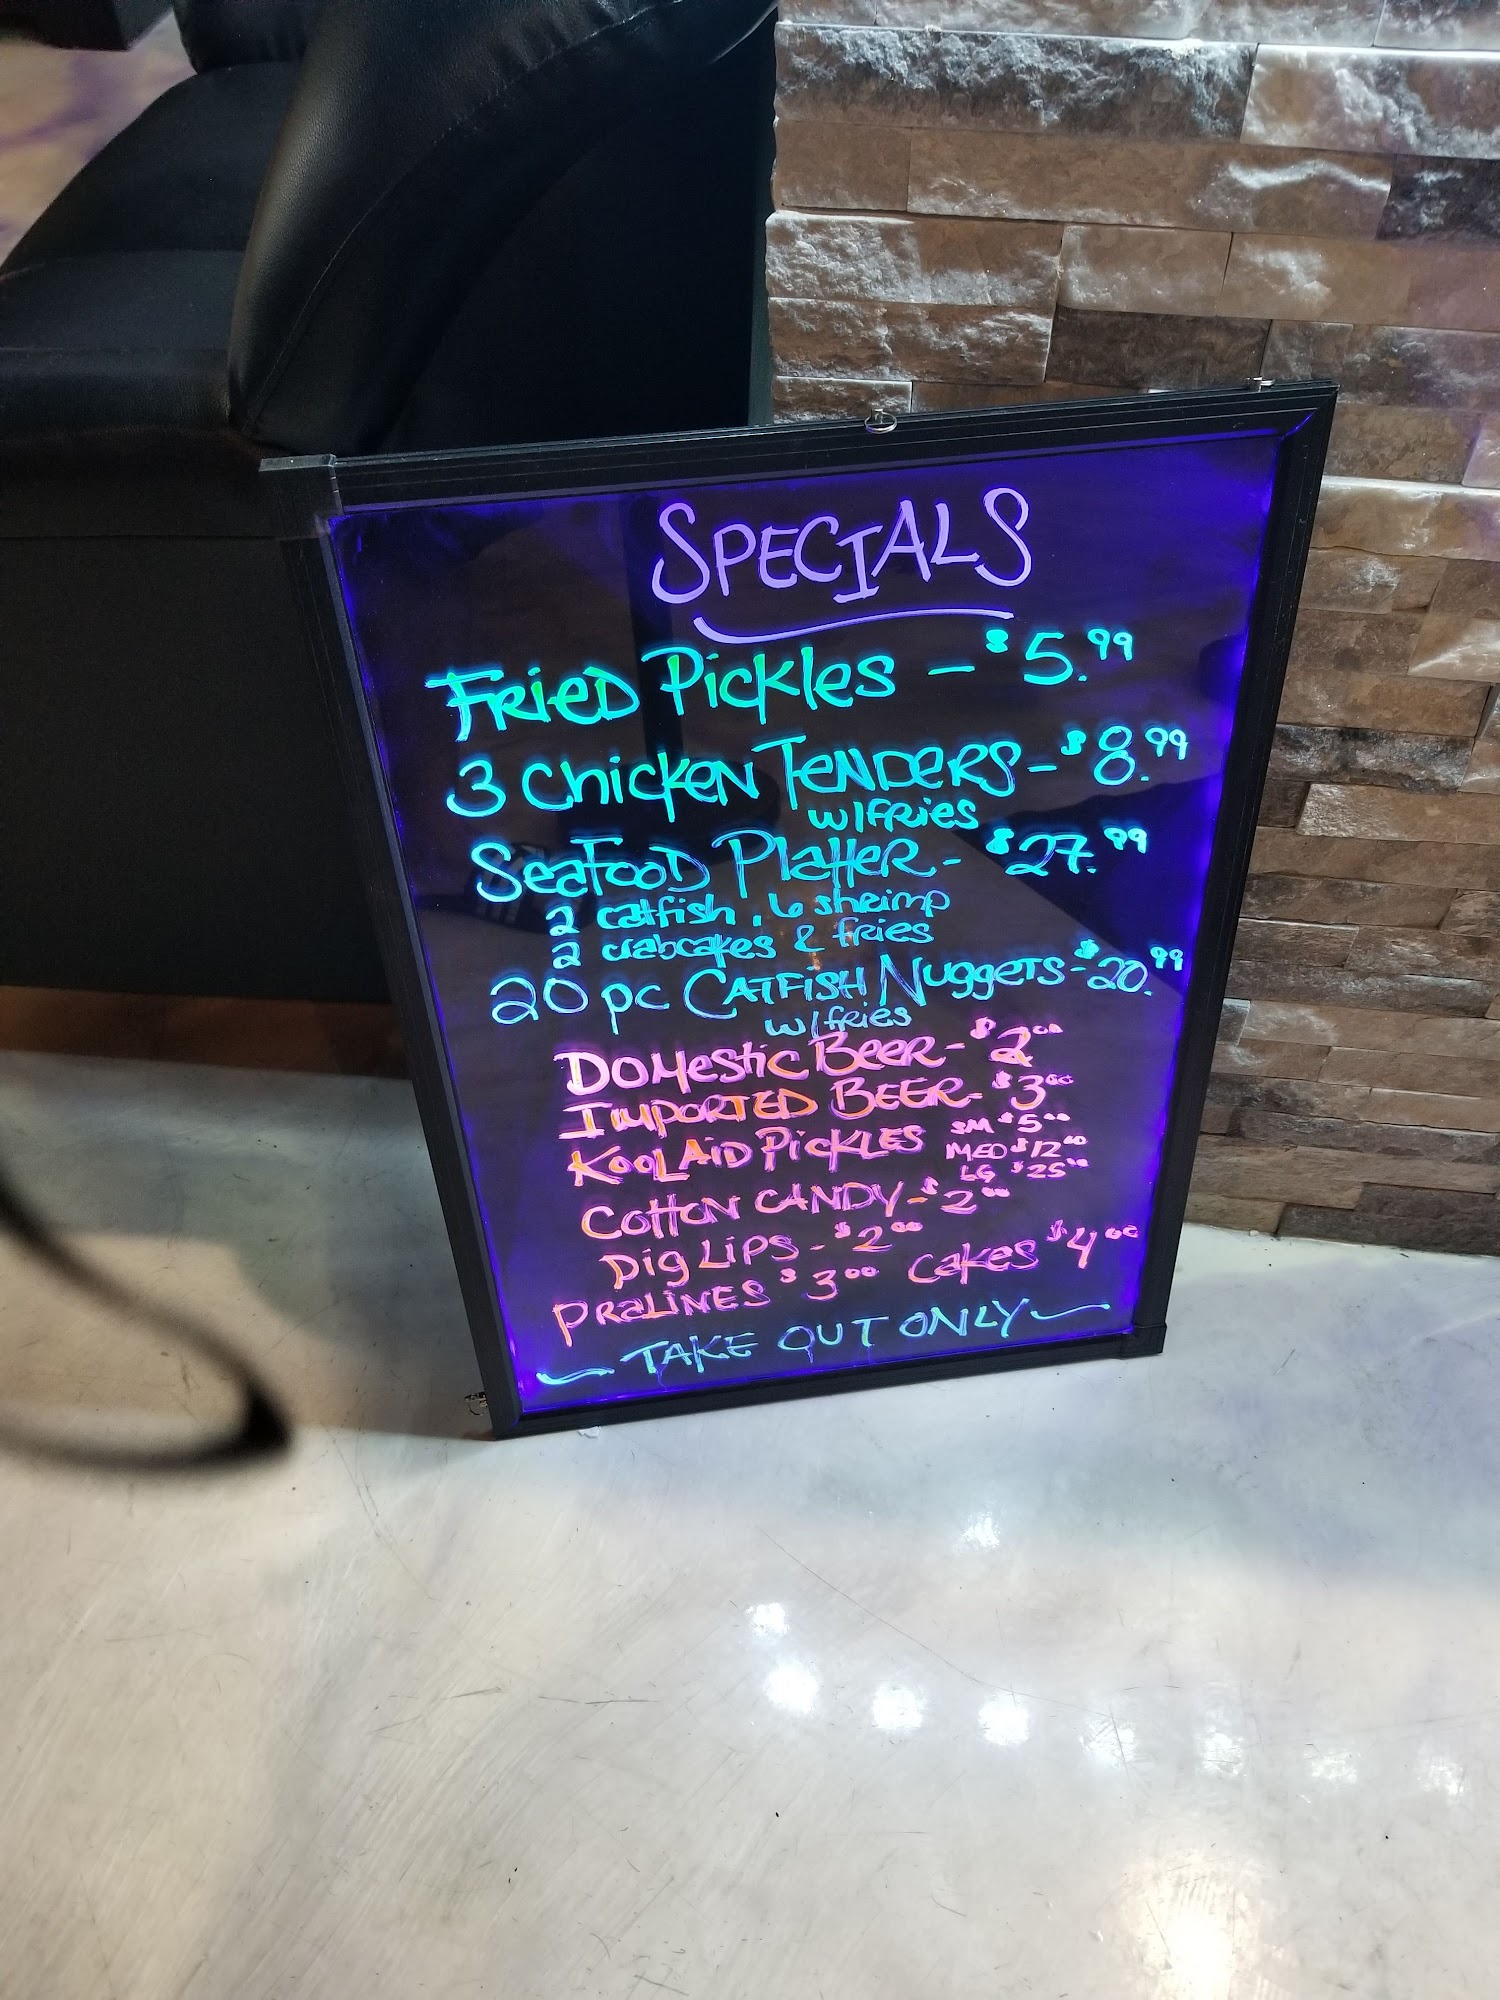 SPECIALS
FRieD Pickles - $5.99
3 Chicken TeNDeRS - $8.99
w/fries
SeaFooD Platter - $27.99
2 catfish, 6 shrimp
2 crabcakes & fries
20 pc CATFISH Nuggets - $20.99
w/fries
DOMestic Beer - $2.00
IMPORTED BEER - $3.00
KOOLAiD PICKLES SM $5.00
MED $12.00
LG $25.00
Cotton CANDY - $2.00
Dig LiPS - $2.00
PRaLINES $3.00 cakes $4.00
TAKE OUT ONLY